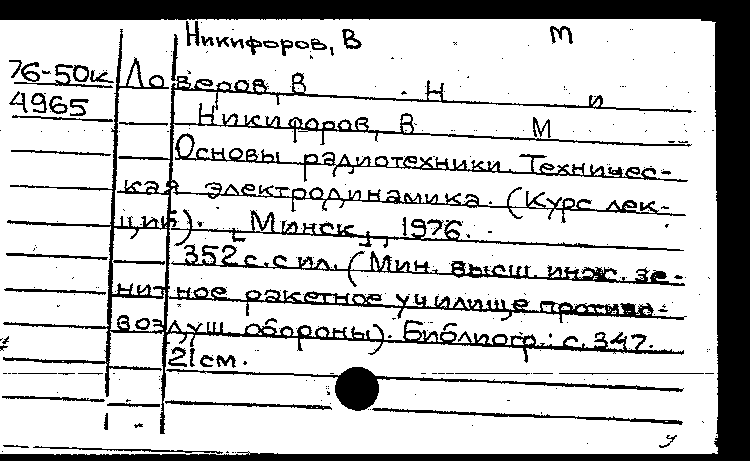 Никифоров, В М
76-50к Ловеров, В Н и
4965 Никифоров, В М
Основы радиотехники. Техничес-
кая электродинамика. (Курс лек-
ций). [Минск], 1976.
352 с. с ил. (Мин. высш. инж. зе-
нитное ракетное училище противо-
воздуш. обороны). Библиогр.: с. 347.
21 см.
у